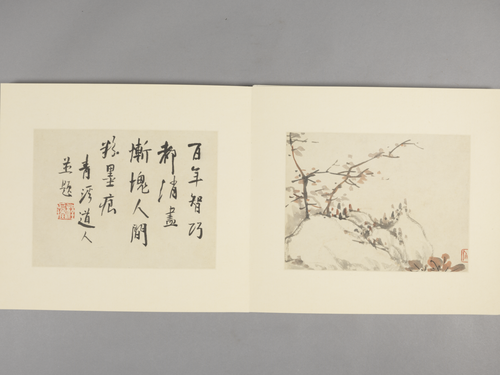 百年智巧
都消盡
慚愧人間
墨痕
青溪道人
並題